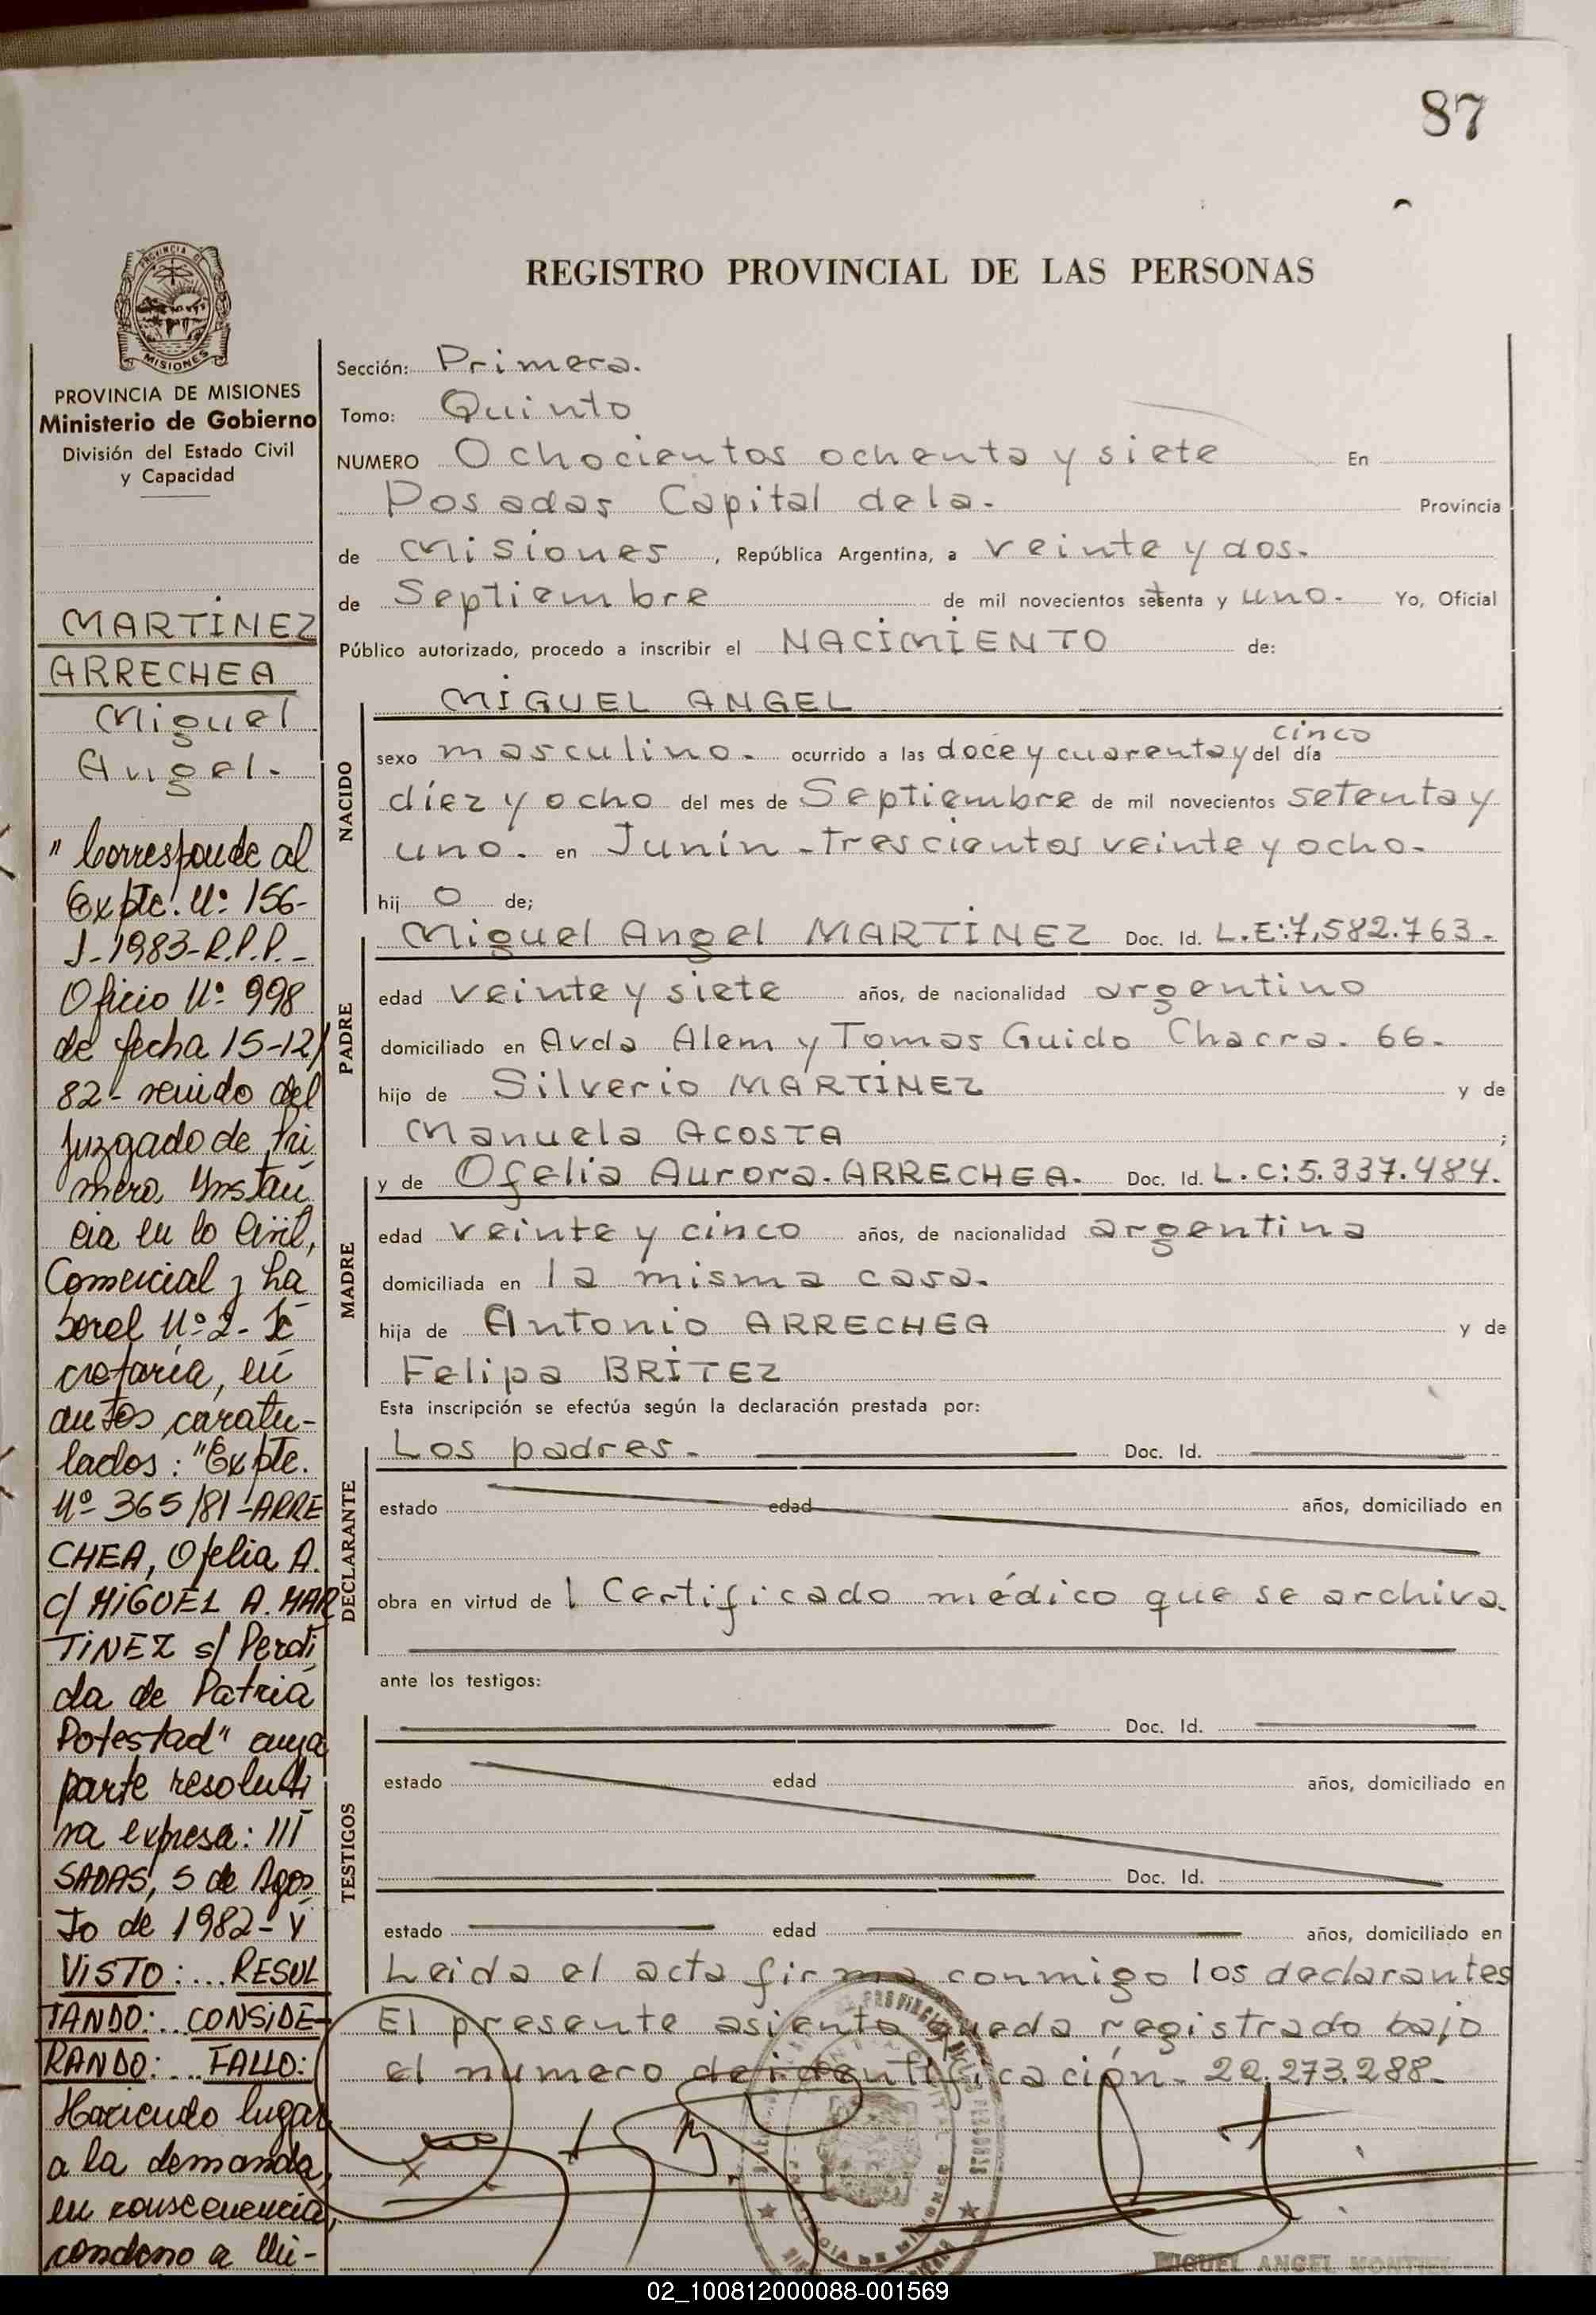 87
REGISTRO PROVINCIAL DE LAS PERSONAS
PROVINCIA DE
MISIONES
PROVINCIA DE MISIONES
Ministerio de Gobierno
División del Estado Civil
y Capacidad
MARTINEZ
ARRECHEA
Miguel
Angel.
"Corresponde al
Expte. Nº 156-
J-1983-R.P.P.-
Oficio Nº 998
de fecha 15-12/
82- venido del
Juzgado de Pri
mera Instan
cia en lo Civil,
Comercial y La
boral Nº 2- Se
cretaría, en
autos caratu-
lados: "Expte.
Nº 365/81-ARRE
CHEA, Ofelia A.
c/ MIGUEL A. MAR
TINEZ s/ Perdi
da de Patria
Potestad" cuya
parte resoluti
va expresa: ///
SADAS, 5 de Agos
to de 1982- Y
VISTO:... RESUL
TANDO:.. CONSIDE-
RANDO:... FALLO:
Haciendo lugar
a la demanda,
en consecuencia,
condeno a Mi-
Sección: Primera.
Tomo: Quinto
NUMERO Ochocientos ochenta y siete En
Posadas Capital de la. Provincia
de Misiones, República Argentina, a veinte y dos.
de Septiembre de mil novecientos setenta y uno. Yo, Oficial
Público autorizado, procedo a inscribir el NACIMIENTO de:
NACIDO
MIGUEL ANGEL
cinco
sexo masculino. ocurrido a las doce y cuarenta y del día
díez y ocho del mes de Septiembre de mil novecientos setenta y
uno. en Junín - trescientos veinte y ocho.
hij o de;
PADRE
Miguel Angel MARTINEZ Doc. Id. L.E:7.582.763.
edad veinte y siete años, de nacionalidad argentino
domiciliado en Avda Alem y Tomas Guido Chacra. 66.
hijo de Silverio MARTINEZ y de
Manuela ACOSTA ;
MADRE
y de Ofelia Aurora. ARRECHEA. Doc. Id. L.C:5.337.484.
edad veinte y cinco años, de nacionalidad argentina
domiciliada en la misma casa.
hija de Antonio ARRECHEA y de
Felipa BRITEZ
Esta inscripción se efectúa según la declaración prestada por:
DECLARANTE
Los padres. Doc. Id.
estado edad años, domiciliado en
obra en virtud de 1 Certificado médico que se archiva.
ante los testigos:
TESTIGOS
Doc. Id.
estado edad años, domiciliado en
Doc. Id.
estado edad años, domiciliado en
Leida el acta firma conmigo los declarantes
El presente asiento queda registrado bajo
el numero de identificación- 22.273.288.
MIGUEL ANGEL
02_100812000088-001569